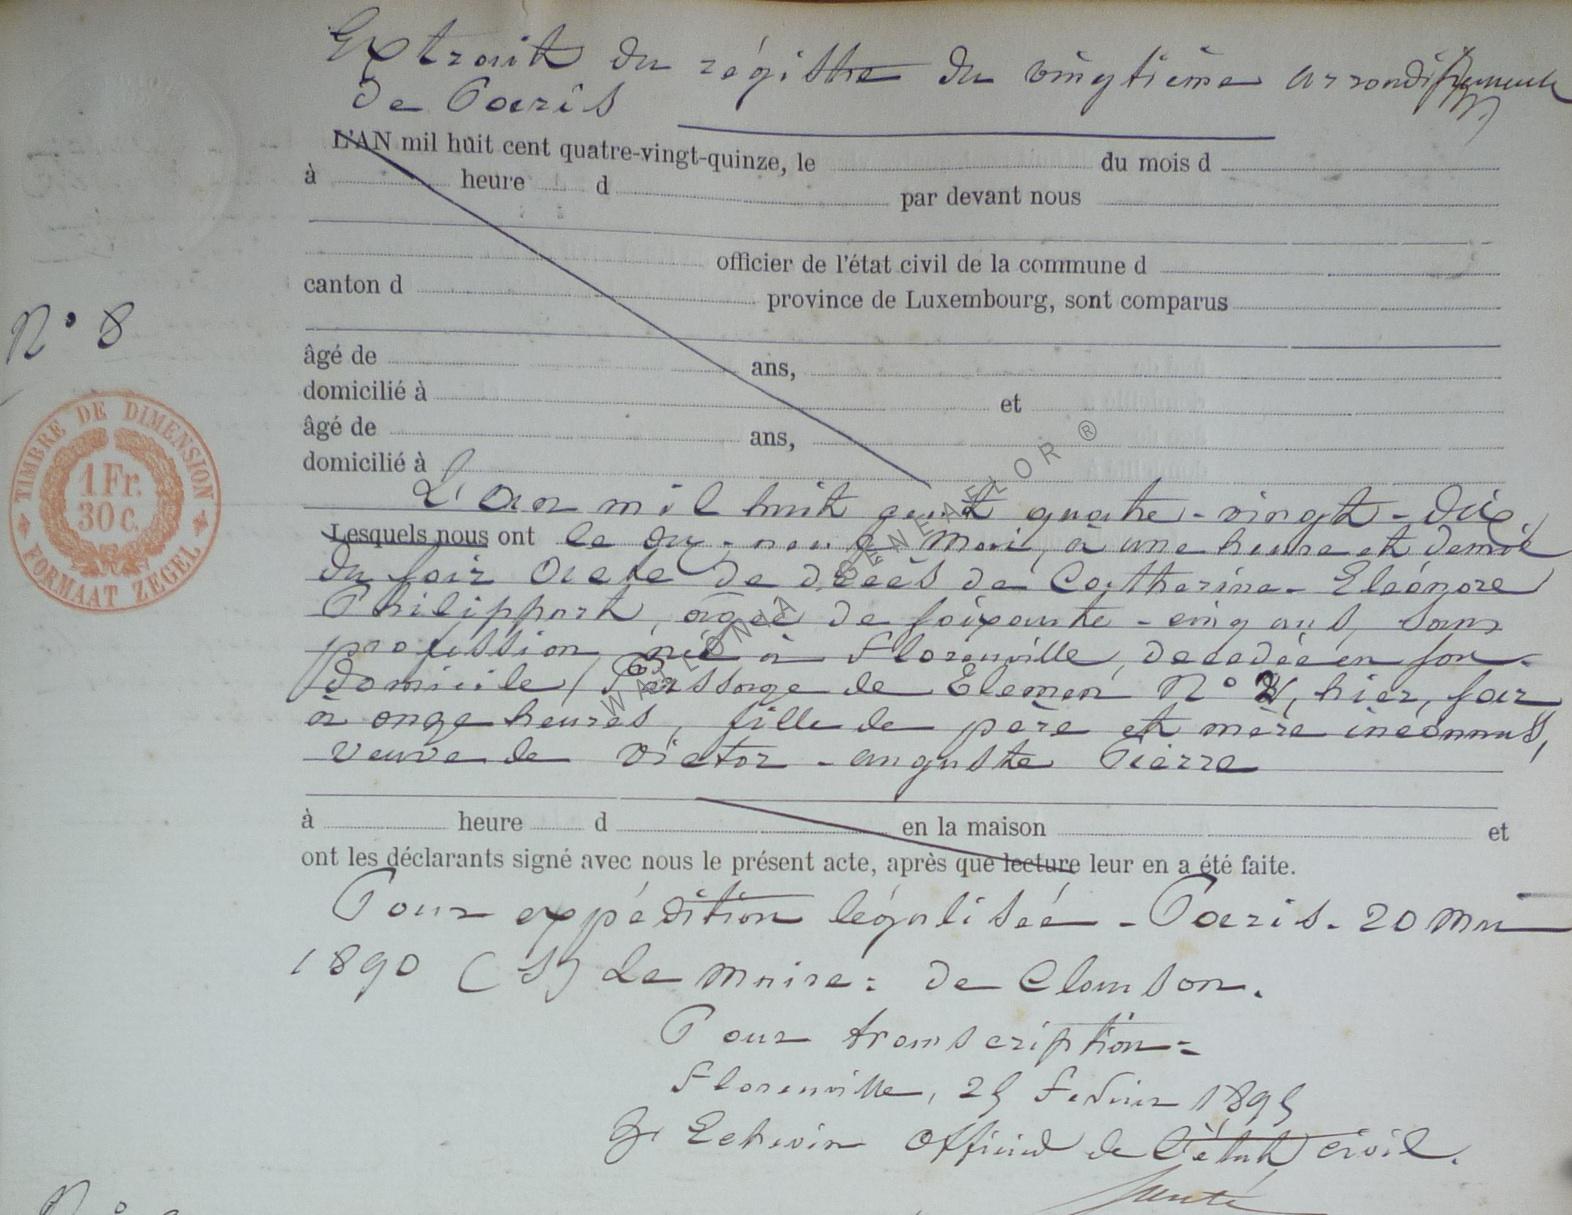 Extrait du régistre du vingtième arrondissement
de Paris
L'AN mil huit cent quatre-vingt-quinze, le du mois d
à heure d par devant nous
officier de l'état civil de la commune d
canton d province de Luxembourg, sont comparus
N° 8
âgé de ans,
domicilié à et
âgé de ans,
domicilié à
TIMBRE DE DIMENSION
1 Fr.
30 c.
FORMAAT ZEGEL
L'an mil huit cent quatre-vingt-dix,
Lesquels nous ont le dix-neuf Mai, à une heure et demie
du soir Acte de décès de Catherine-Eléonore
Philippart, âgée de soixante-cinq ans, sans
profession, née à Florenville, décédée en son
domicile, Passage de N° 2, hier, soir
à onze heures, fille de père et mère inconnus,
veuve de Victor-auguste Pierre
à heure d en la maison et
ont les déclarants signé avec nous le présent acte, après que lecture leur en a été faite.
Pour expédition légalisée - Paris. 20 mai
1890 (S) Le Maire: de
Pour transcription=
Florenville, 25 Février 1895
Echevin Officier de l'état civil.
WALLONIA GENEAFLOR ®